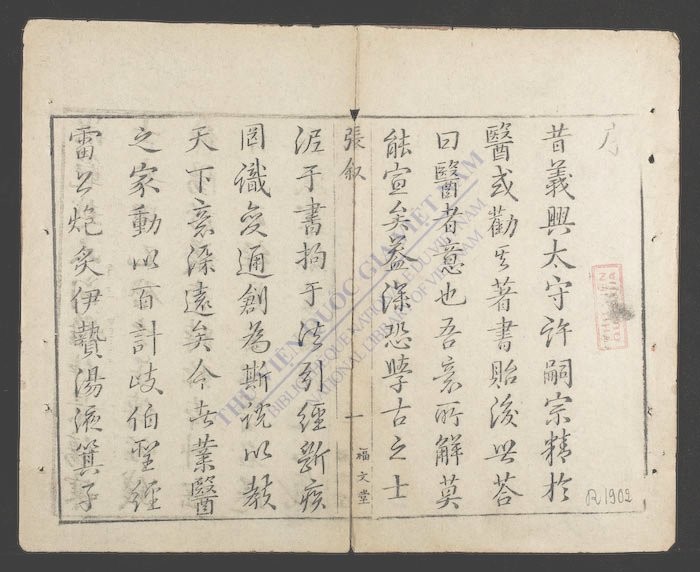 序
昔義興太守許嗣宗精於
醫或勸其著書貽後世荅
曰醫者意也吾意所解莫
能宣矣葢深恐學古之士
張叙
一
福文堂
泥于書拘于法引經斷疾
罔識変通創為斯說以教
天下意深遠矣今去業醫
之家動以百計歧伯聖經
雷公炮炙伊贄湯液箕子
R.1902
THƯ VIỆN QUỐC GIA VIỆT NAM
BIBLIOTHEQUE NATIONALE DU VIETNAM
NATIONAL LIBRARY OF VIETNAM